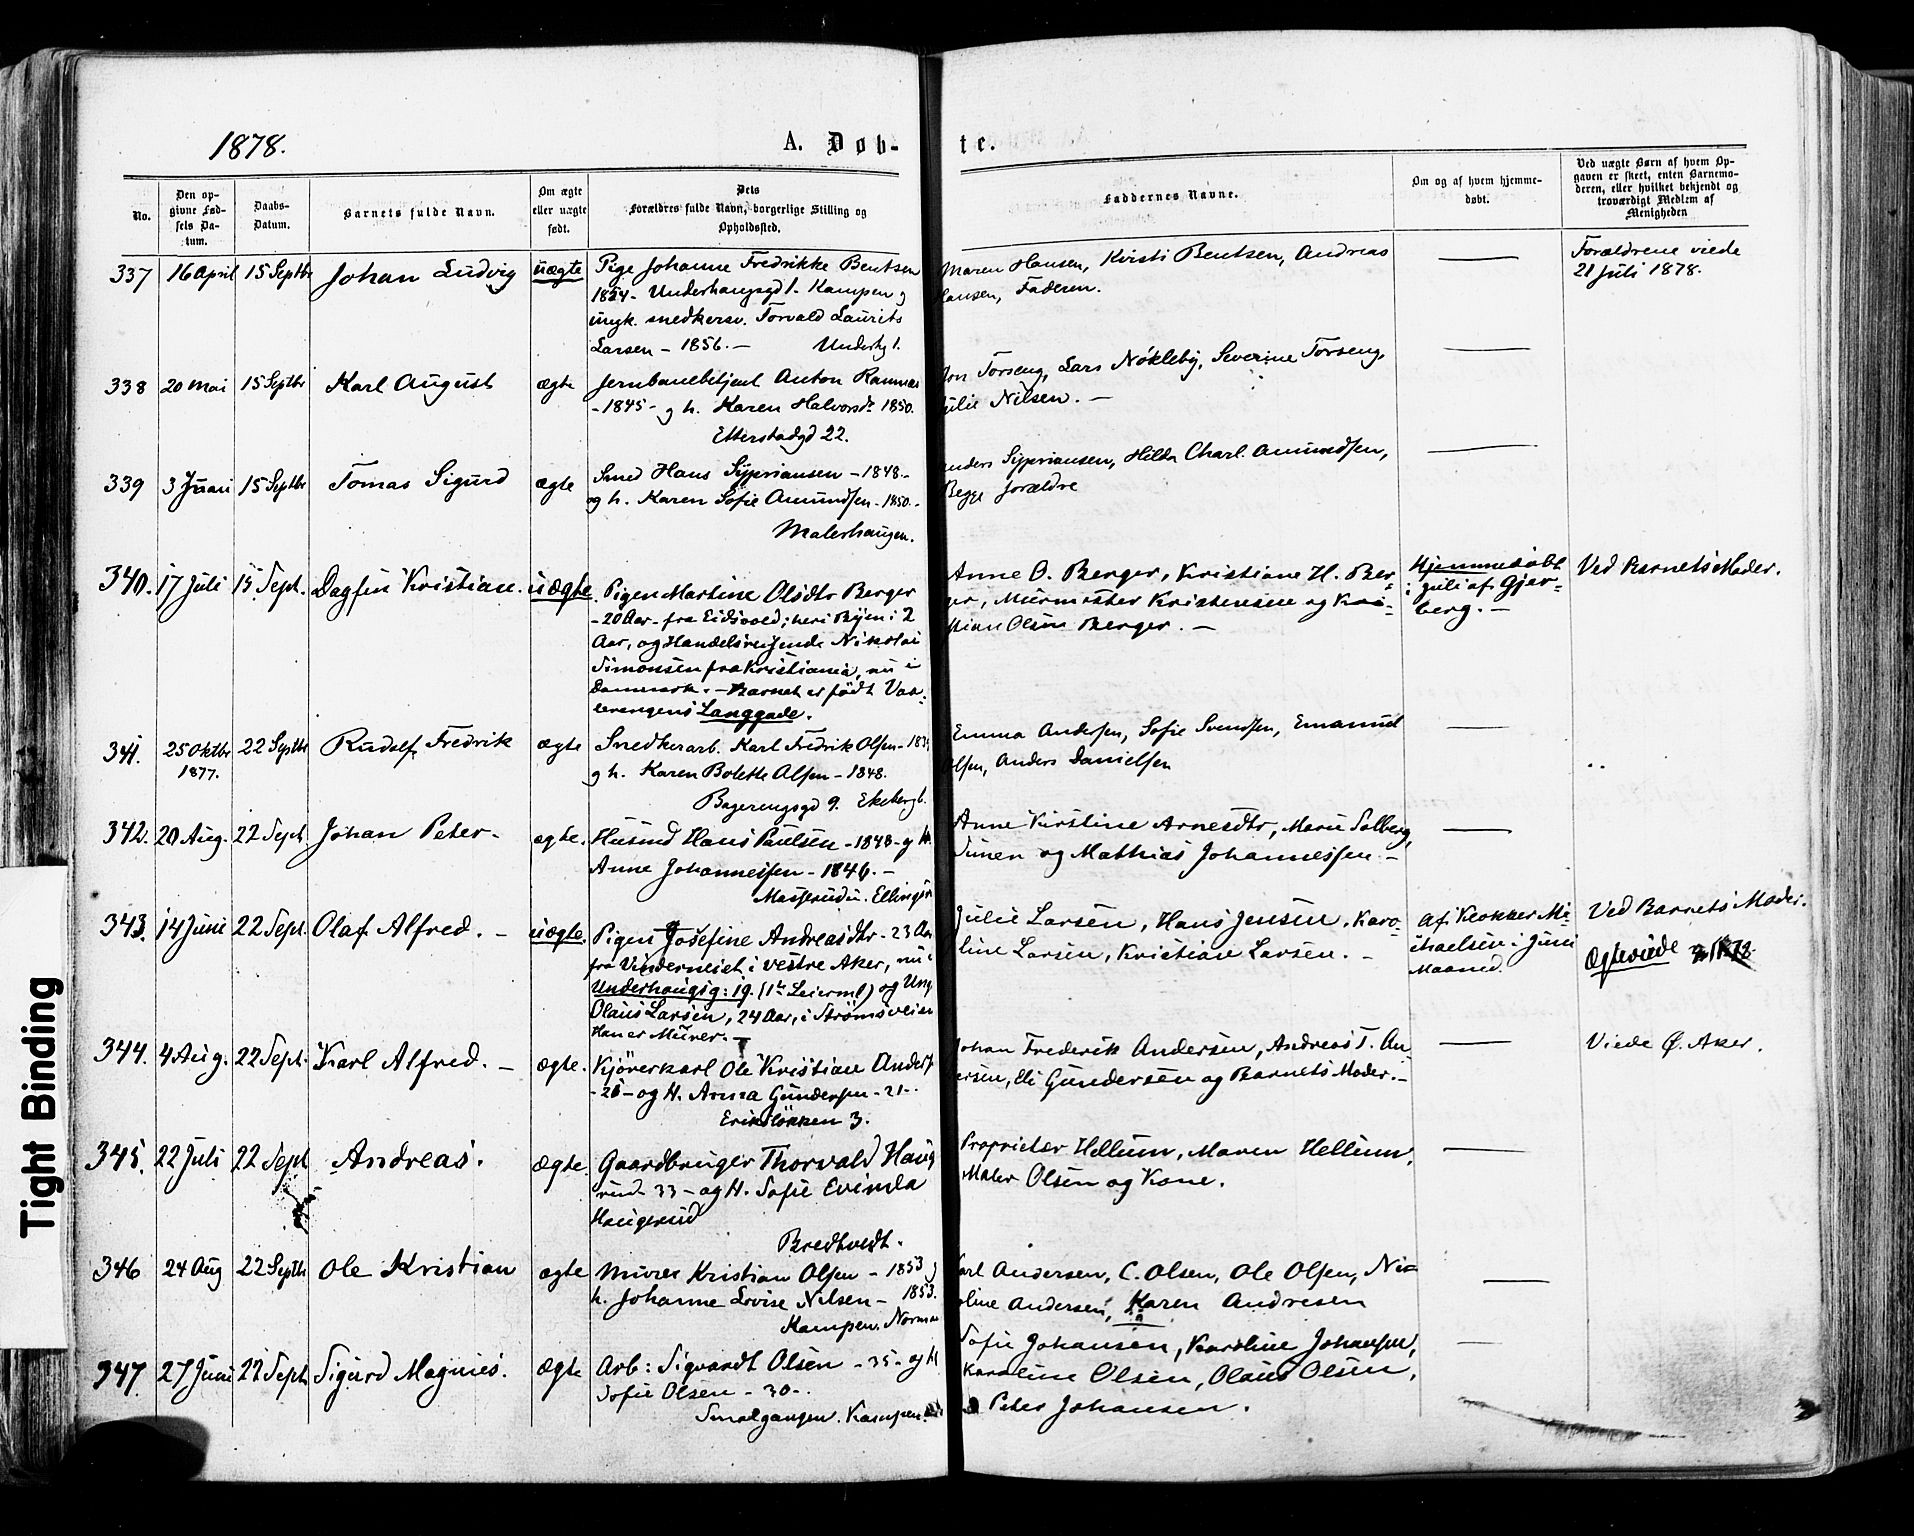 1878.
A. Døb-
te.
No.
Den op-
givne Fød-
sels Da-
tum.
Daabs-
Datum.
Barnets fulde Navn.
Om ægte
eller uægte
født.
Dets
Forældres fulde Navn, borgerlige Stilling og
Opholdssted.
Faddernes Navne.
Om og af hvem hjemme-
døbt.
Ved uægte Børn af hvem Op-
gaven er skeet, enten Barnemo-
deren, eller hvilket bekjendt og
troværdigt Medlem af
Menigheden
337 16 April 15 Septbr Johan Ludvig uægte
Pige Johanne Fredrikke Bentsen
1854 - Underhaugsgd 1. Kampen g
ungk. snedkersv. Torvald Laurits
Larsen - 1856. - Underhg 1.
Maren Hansen, Kristi Bentsen, Andreas
Hansen, Faderen.
Forældrene viede
21 Juli 1878.
338 20 Mai 15 Septbr Karl August ægte
Jernbanebetjent Anton
- 1845 - g h. Karen Halvorsdr 1850.
Etterstadgd 22.
Jon Torseng, Lars Nøkleby, Severine Torseng,
Julie Nilsen. -
339 3 Juni 15 Septbr Tomas Sigurd ægte
Smed Hans Sypriansen - 1848 -
og h. Karen Sofie Amundsen - 1850 -
Malerhaugen.
Anders Sypriansen, Hilda Charl. Amundsen,
Begge forældre
340. 17 Juli 15 Sept. Dagfin Kristian. uægte.
Pigen Martine Olsdtr Berger
- 20 Aar - fra Eidsvold; her i Byen i 2
Aar, og Handelsreisende Nikolai
Simonsen fra Kristiania, nu i
Danmark. - Barnet er født Vaa-
lerengens Langgade.
Anne O. Berger, Kristiane H. Ber-
ger, Murmester Kristensen og Kri-
stian Olsen Berger. -
Hjemmedøbt
i Juli af Gjer-
berg. -
Ved Barnets Moder.
341. 25 Oktbr 22 Septbr Rudolf Fredrik ægte
1877.
Snedkerarb. Karl Fredrik Olsen -
g h. Karen Bolette Olsen - 1848.
9. Ekebergb.
Emma Andersen, Sofie Svendsen, Emanuel
Olsen, Anders Danielsen
342. 20 Aug. 22 Sept. Johan Peter - ægte.
Husmd Hans Paulsen - 1843 - g H.
Anne Johannessen - 1846. -
Anne Kirstine Arnesdtr, Marie Solberg,
og Mathias Johannessen. -
343. 14 Juni 22 Sept. Olaf Alfred. - uægte.
Pigen Josefine Andreasdtr - 23 Aar
fra Vinderneiet i Vestre Aker, nu i
Underhaugsg: 19. (1ste Leierml) og Ung.
Olaus Larsen, 24 Aar, i Strømsveien
Han er Murer. -
Julie Larsen, Hans Jensen, Karo-
line Larsen, Kristian Larsen. -
af Klokker Mi-
chaelsen i Juni
Maaned.
Ved Barnets Moder.
Ægteviede
344. 4 Aug. 22 Sept. Karl Alfred. - ægte.
Kjørerkarl Ole Kristian Anders
- 26 - og H. Anna Gundersen - 21 -
Eriksløkken 3.
Johan Frederik Andersen, Andreas T. An-
ersen, Eli Gundersen og Barnets Moder. -
Viede Ø. Aker.
345. 22 Juli 22 Sept Andreas. ægte.
Gaardbruger Thorvald Haug
rud 33 - og H. Sofie Evinda
Haugerud
Bredtvedt.
Proprietær Hellum, Maren Hellum,
Maler Olsen og Kone.
346 24 Aug 22 Septbr Ole Kristian ægte
Murer Kristian Olsen - 1853 g
h. Johanne Lovise Nilsen - 1853.
Kampen. Norman
Karl Andersen, C. Olsen, Ole Olsen, Ni-
coline Andersen, Karen Andresen
347. 27 Juni 22 Sept. Sigurd Magnus. ægte
Arb: Sigvardt Olsen - 35 - og H
Sofie Olsen - 30 -.
Smalgangen. Kampen
Sofie Johansen, Karoline Johansen,
Karoline Olsen, Olaus Olsen,
Peter Johansen.
Tight Binding